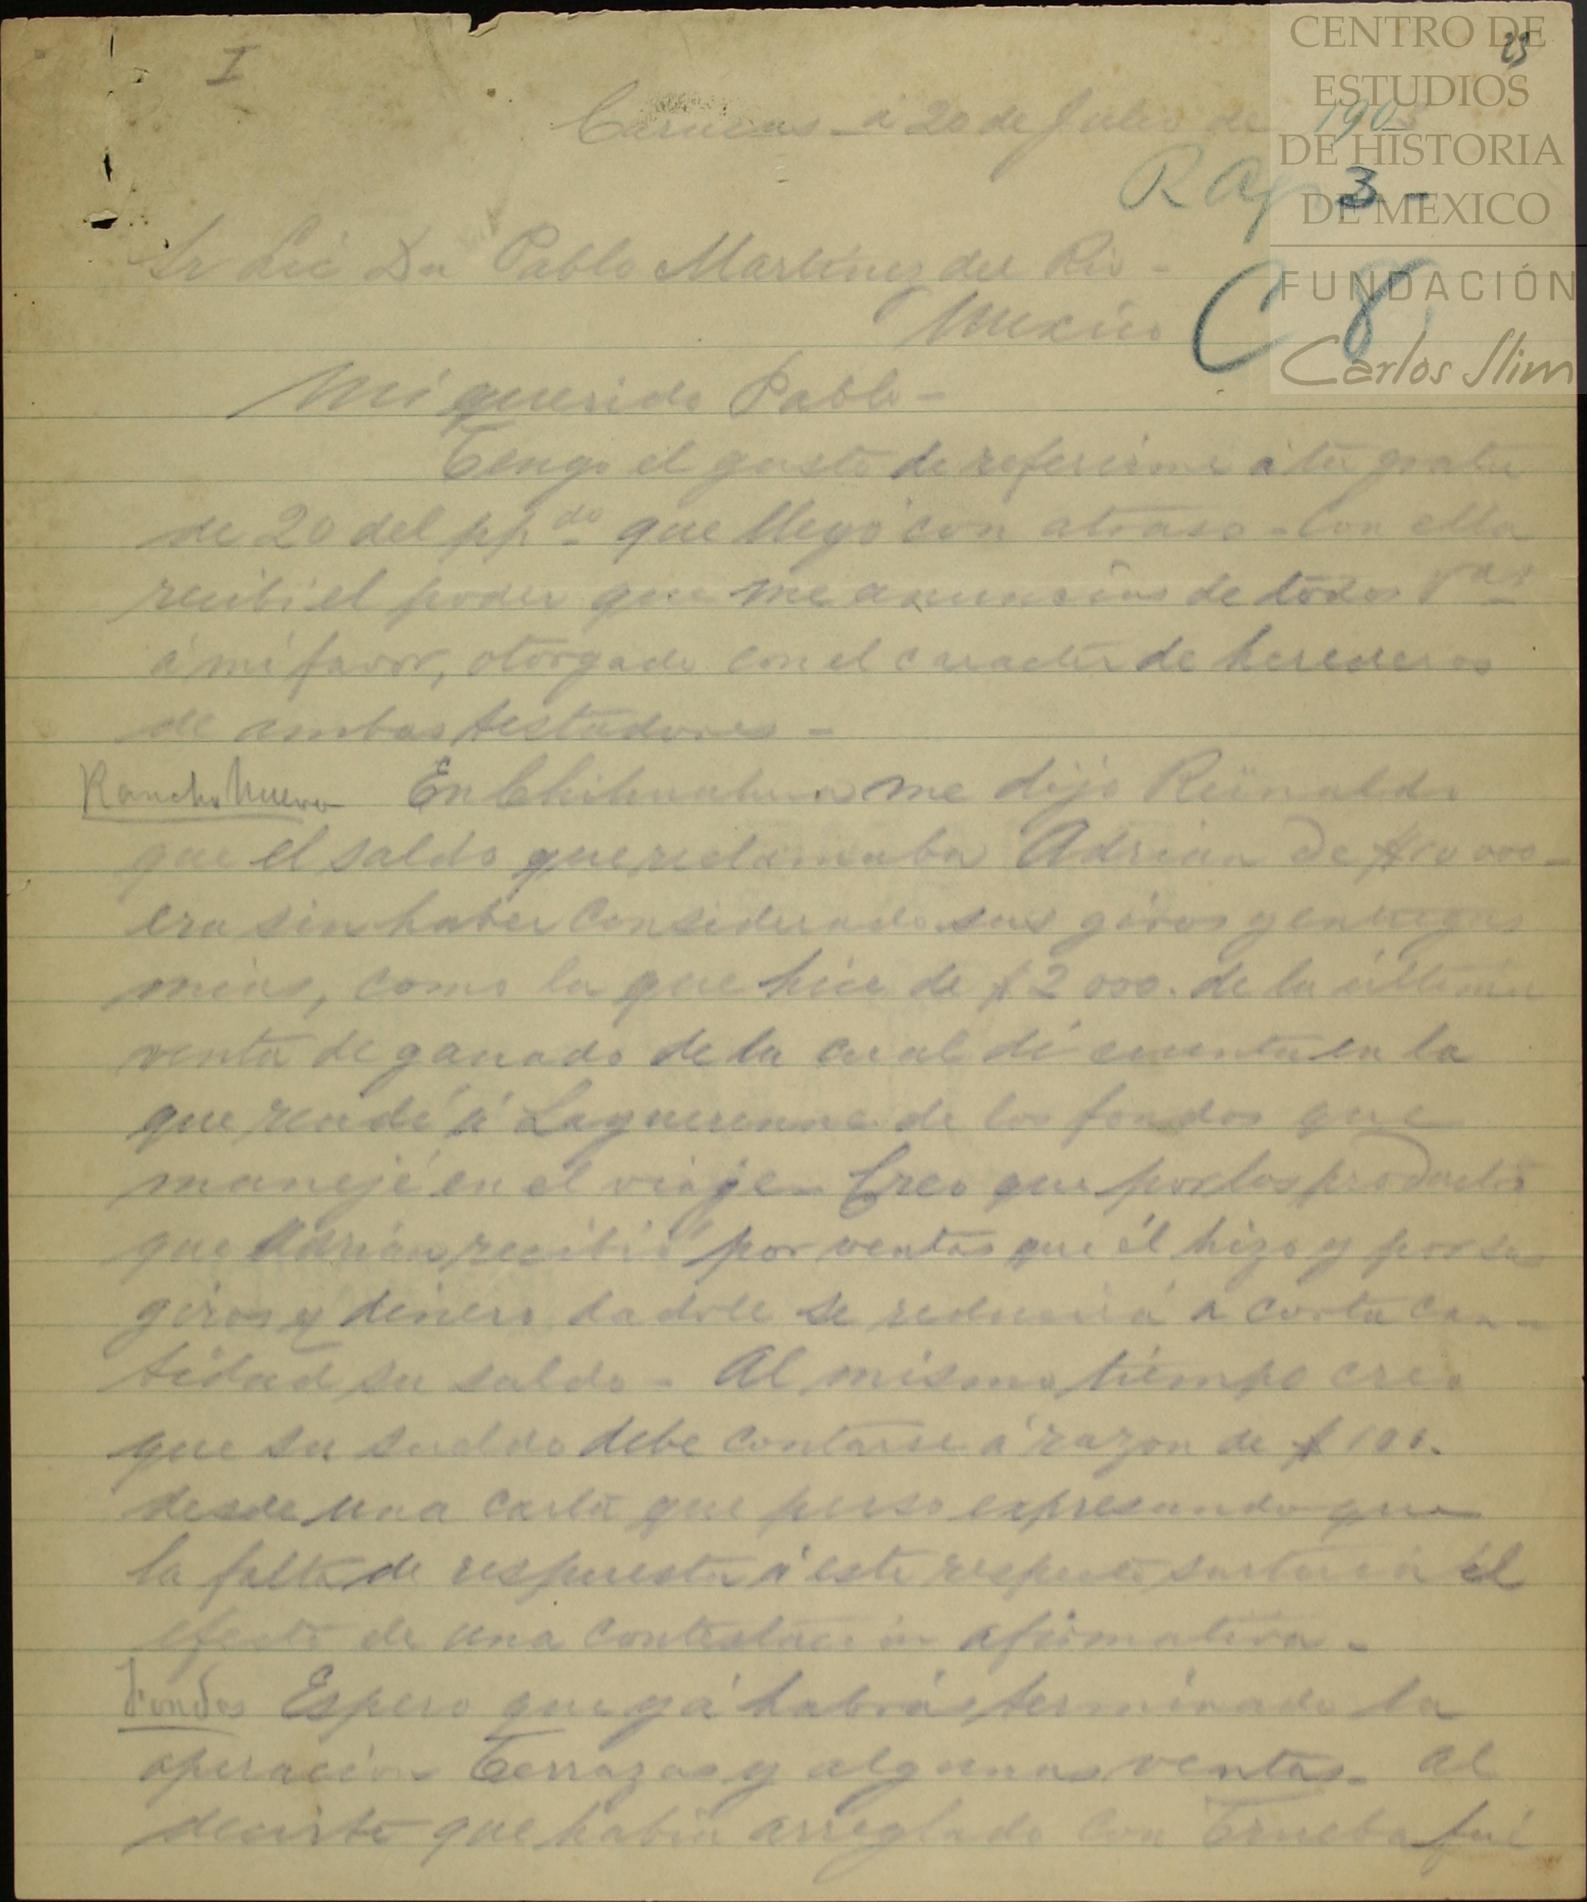 I
23
CENTRO DE
ESTUDIOS
DE HISTORIA
DE MEXICO
FUNDACIÓN
Carlos Slim
Caracas á 20 de Julio de 190
3 -
C 8
Sr Lic Dn Pablo Martinez del Rio -
Mexico
Mi querido Pablo -
Tengo el gusto de referirme á tu grata
de 20 del pp.do que llegó con atraso - Con ella
recibi el poder que me anuncias de todos Vds
á mi favor, otorgado con el caracter de herederos
de ambos testadores -
Rancho Nuevo En Chihuahua me dijo Reinaldo
que el saldo que reclamaba Adrian de $10 000 -
era sin haber considerado sus giros y entregas
mias, como la que hice de $2 000. de la ultima
venta de ganado de la cual di cuenta en la
que rendí á Laguerenne de los fondos que
manejé en el viaje - Creo que por los productos
que Adrian recibió por ventas que él hizo y por sus
giros y dinero dadole se reducirá a corta can-
tidad su saldo - Al mismo tiempo creo
que su sueldo debe contarse á razon de $100.
desde una carta que puso expresando que
la falta de respuesta á este respecto surtaria el
efecto de una contestacion afirmativa -
Fondos Espero que yá habrás terminado la
operacion Terrazas y algunas ventas - Al
decirte que habia arreglado con Trueba fué